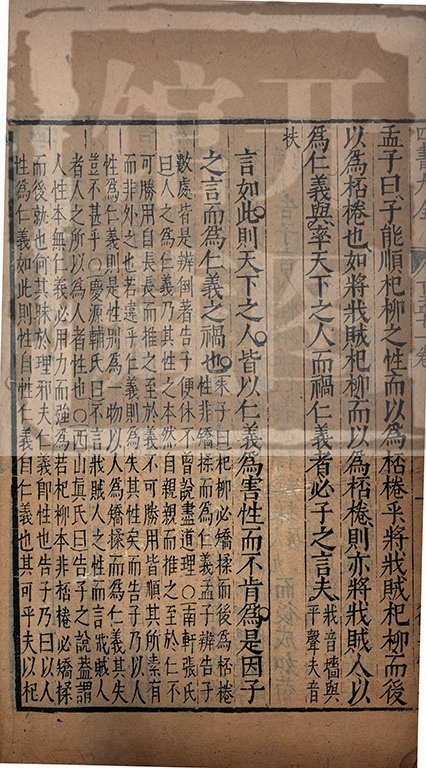 四書大全
孟子曰子能順杞柳之性而以爲桮棬乎將戕賊杞柳而後
以爲桮棬也如將戕賊杞柳而以爲桮棬則亦將戕賊人以
爲仁義與率天下之人而禍仁義者必子之言夫
戕音墻與
平聲夫音
扶
言如此則天下之人皆以仁義爲害性而不肯爲是因子
之言而爲仁義之禍也
朱子曰杞柳必矯揉而後爲桮棬
性非矯揉而爲仁義孟子辨告子
數處皆是辨倒著告子便休不曾說盡道理○南軒張氏
曰人之爲仁義乃其性之本然自親親而推之至於仁不
可勝用自長長而推之至於義不可勝用皆順其所素有
而非外之也若違乎仁義則爲失其性矣而告子乃以人
性爲仁義則是性別爲一物以人爲矯揉而爲仁義其失
豈不甚乎○慶源輔氏曰不言戕賊人之性而言戕賊人
者人之所以爲人者性也○西山眞氏曰告子之說蓋謂
人性本無仁義必用力而強爲若杞柳本非桮棬必矯揉
而後就也何其昧於理邪夫仁義卽性也告子乃曰以人
性爲仁義如此則性自性仁義自仁義也其可乎夫以杞